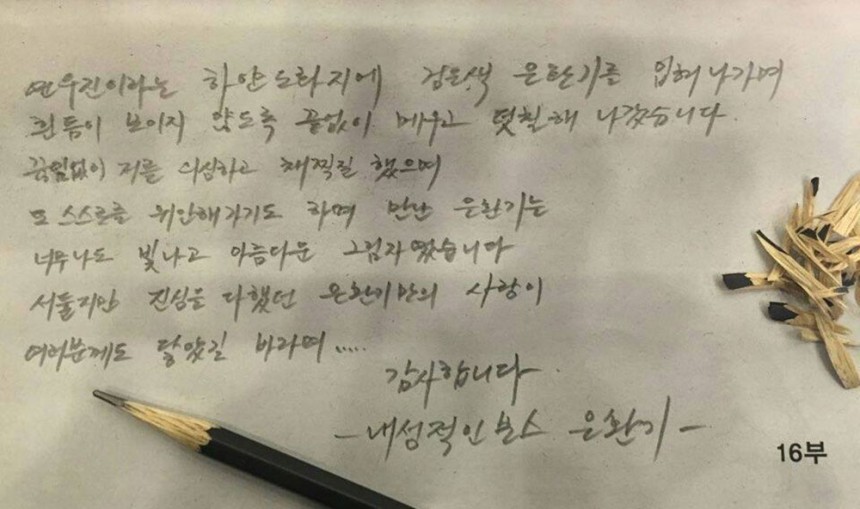 연우진이라는 하얀도화지에 검은색 은환기를 입혀나가며
흰틈이 보이지 않도록 끝없이 메우고 덧칠해 나갔습니다.
끊임없이 저를 의심하고 채찍질 했으며
또 스스로를 위안해가기도 하며 만난 은환기는
너무나도 빛나고 아름다운 그림자였습니다
서툴지만 진심을 다했던 은환기만의 사랑이
여러분께도 닿았길 바라며.....
감사합니다.
-내성적인보스 은환기-
16부